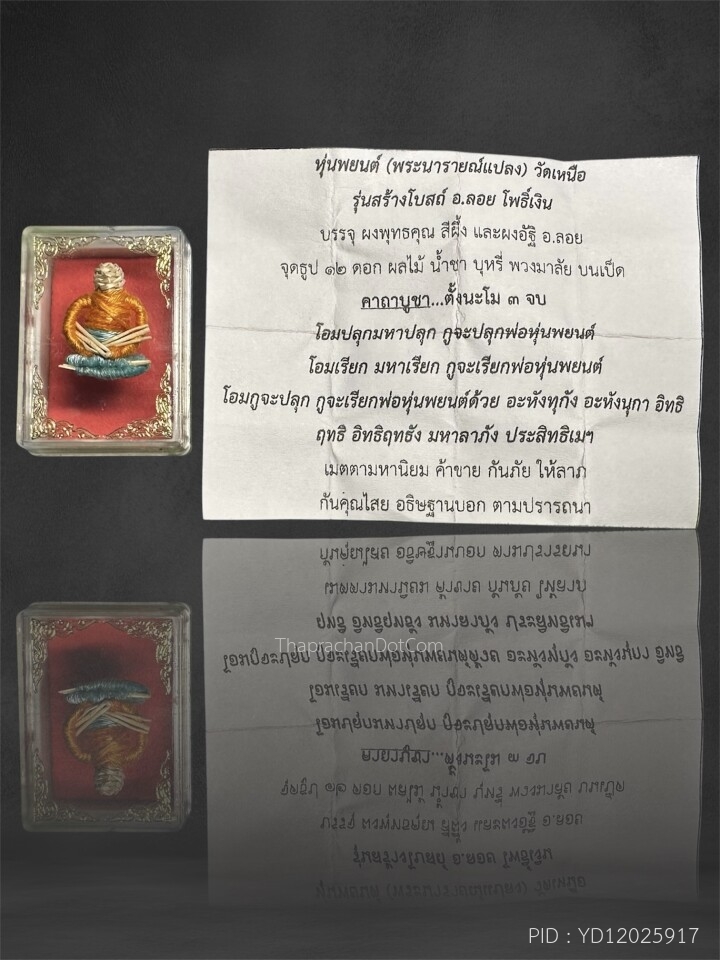 หุ่นพยนต์ (พระนารายณ์แปลง) วัดเหนือ
รุ่นสร้างโบสถ์ อ.ลอย โพธิ์เงิน
บรรจุ ผงพุทธคุณ สีผึ้ง และผงอัฐิ อ.ลอย
จุดธูป ๑๒ ดอก ผลไม้ น้ำชา บุหรี่ พวงมาลัย บนเป็ด
คาถาบูชา...ตั้งนะโม ๓ จบ
โอมปลุกมหาปลุก กูจะปลุกพ่อหุ่นพยนต์
โอมเรียก มหาเรียก กูจะเรียกพ่อหุ่นพยนต์
โอมกูจะปลุก กูจะเรียกพ่อหุ่นพยนต์ด้วย อะหังทุกัง อะหังนุกา อิทธิ
ฤทธิ อิทธิฤทธัง มหาลาภัง ประสิทธิเมฯ
เมตตามหานิยม ค้าขาย กันภัย ให้ลาภ
กันคุณไสย อธิษฐานบอก ตามปรารถนา
ThaprachanDotCom
PID : YD12025917